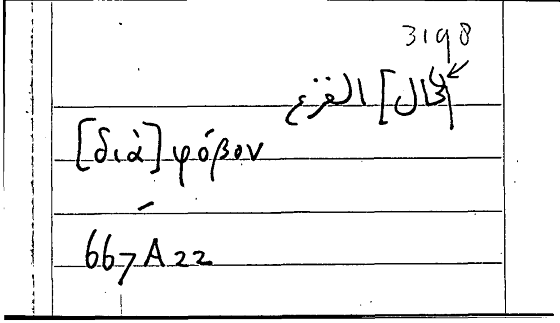 3198
[حال] الفزع
[διὰ] φόβον
667A22